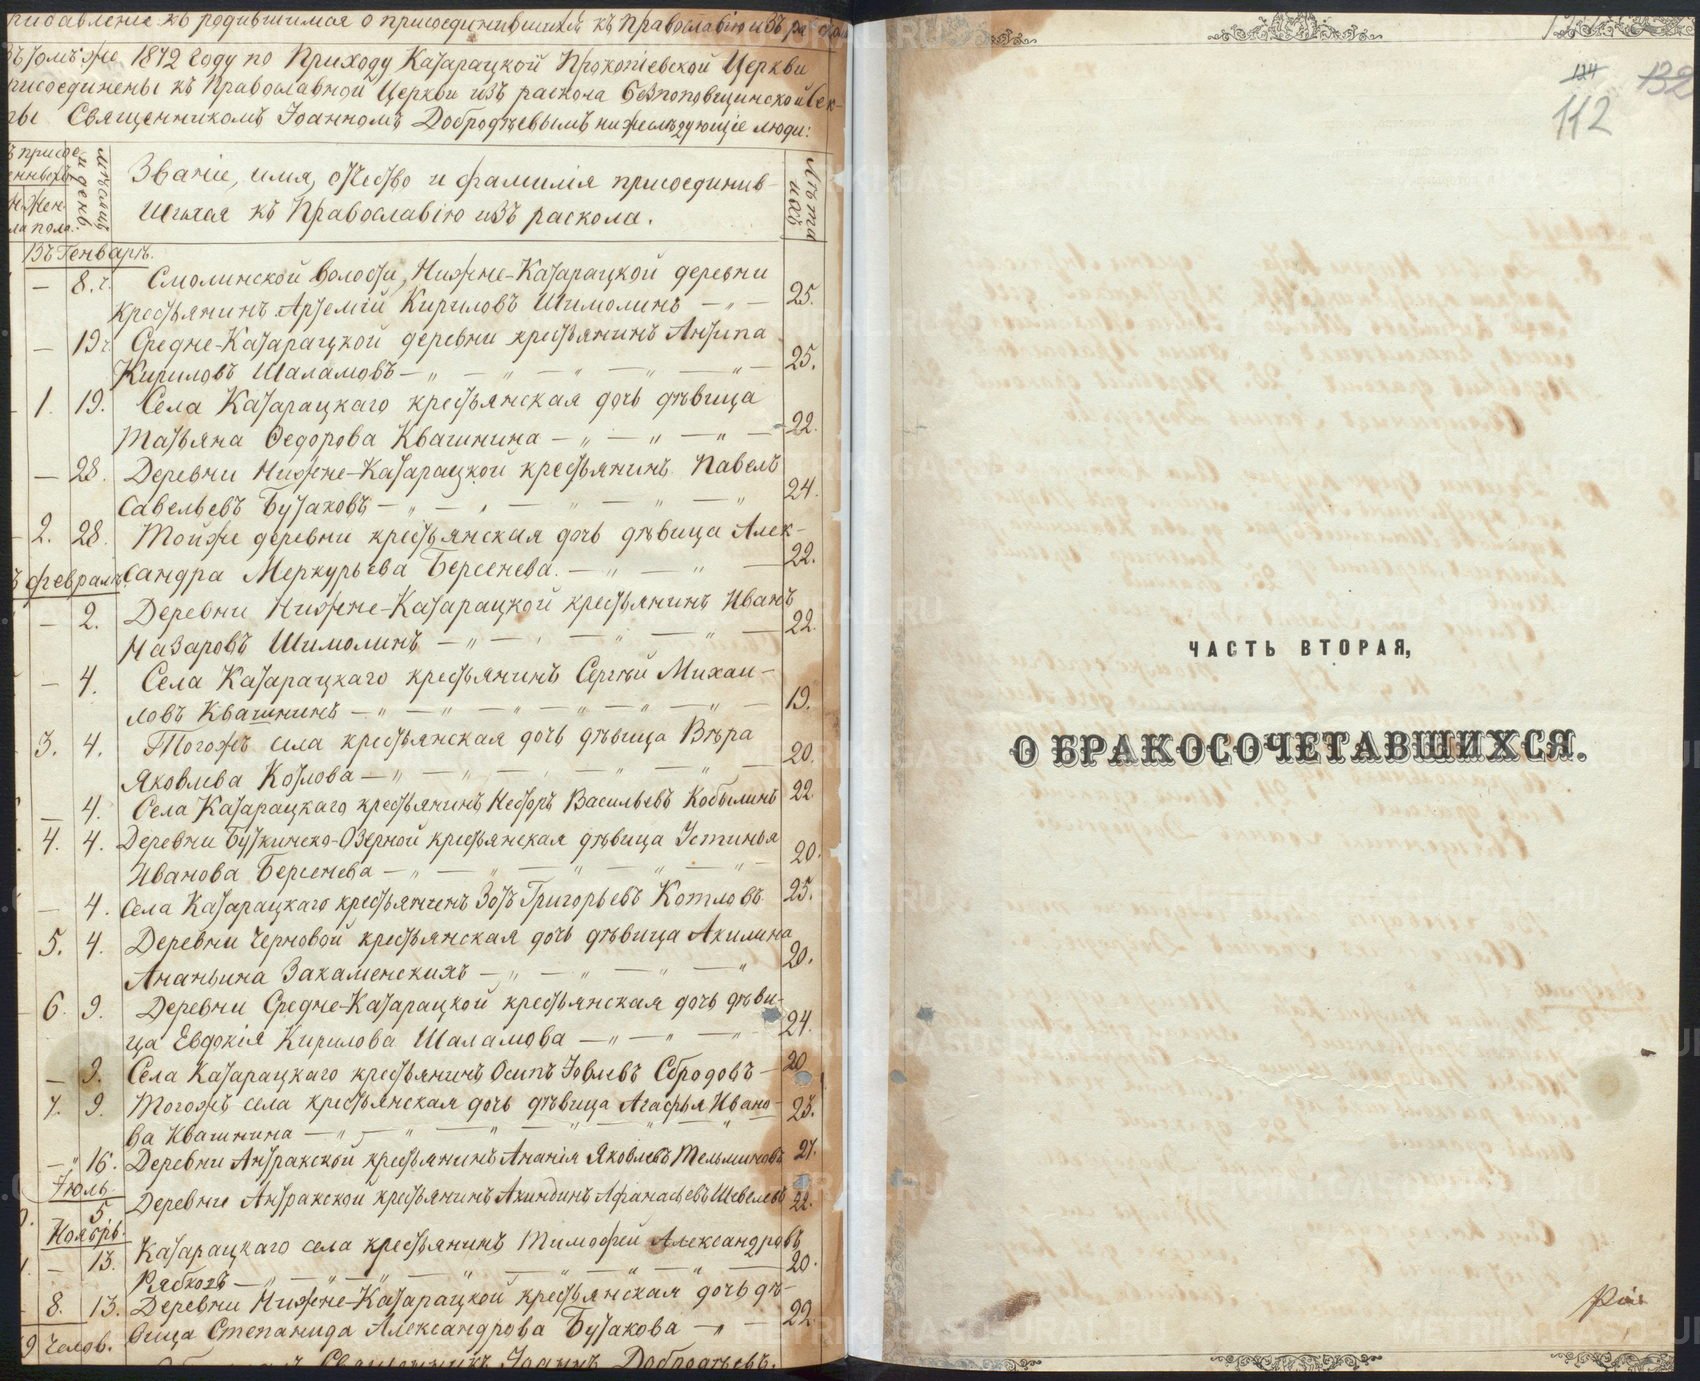 къ родившимся о присоединившихся къ Православію изъ
1872 году по Приходу Катарацкой Прокопіевской Церкви
присоединены къ Православной Церкви изъ раскола безпоповщинской Сек-
ты Священникомъ Іоанномъ Добродѣевымъ нижеслѣдующіе люди:
мѣсяцъ и день.
Званіе, имя, отчество и фамилія присоединив-
шихся къ Православію изъ раскола.
лѣта ихъ
Въ Генварѣ.
— 8. Смолинской волости, Нижне-Катарацкой деревни
крестьянинъ Артемій Кириловъ Шимолинъ — 25.
— 19. Средне-Катарацкой деревни крестьянинъ Антипа
Кириловъ Шаламовъ — 25.
1. 19. Села Катарацкаго крестьянская дочь дѣвица
Татьяна Ѳедорова Квашнина — 22.
— 28. Деревни Нижне-Катарацкой крестьянинъ Павелъ
Савельевъ Бутаковъ — 24.
2. 28. Тойже деревни крестьянская дочь дѣвица Алек-
сандра Меркурьева Берсенева. — 22.
февраль.
— 2. Деревни Нижне-Катарацкой крестьянинъ Иванъ
Назаровъ Шимолинъ — 22.
— 4. Села Катарацкаго крестьянинъ Сергѣй Михаи-
ловъ Квашнинъ — 19.
3. 4. Тогожъ села крестьянская дочь дѣвица Вѣра
Яковлева Котлова — 20.
— 4. Села Катарацкаго крестьянинъ Несторъ Васильевъ Кобылинъ 22
4. 4. Деревни Буткинско-Озерной крестьянская дѣвица Устинья
Иванова Берсенева — 20.
— 4. Села Катарацкаго крестьянинъ Зотъ Григорьевъ Котловъ. 25.
5. 4. Деревни Черновой крестьянская дочь дѣвица Акилина
Ананьина Закаменскихъ — 20.
6. 9. Деревни Средне-Катарацкой крестьянская дочь дѣви-
ца Евдокія Кирилова Шаламова — 24.
— 9. Села Катарацкаго крестьянинъ Осипъ Іовлевъ Сбродовъ — 20
7. 9. Тогожъ села крестьянская дочь дѣвица Агафья Ивано-
ва Квашнина — 23.
— 16. Деревни Антракской крестьянинъ Ананія Яковлевъ Тельминовъ 21.
Іюль.
5 Деревни Антракской крестьянинъ Акиндинъ Афанасьевъ Шевелевъ 22.
Ноябрь.
— 13. Катарацкаго села крестьянинъ Тимофей Александровъ
Рябковъ — 20.
8. 13. Деревни Нижне-Катарацкой крестьянская дочь дѣ-
вица Степанида Александрова Бутакова — 22.
челов.
Священникъ Іоаннъ Добродѣевъ.
134 132
112
ЧАСТЬ ВТОРАЯ,
О БРАКОСОЧЕТАВШИХСЯ.